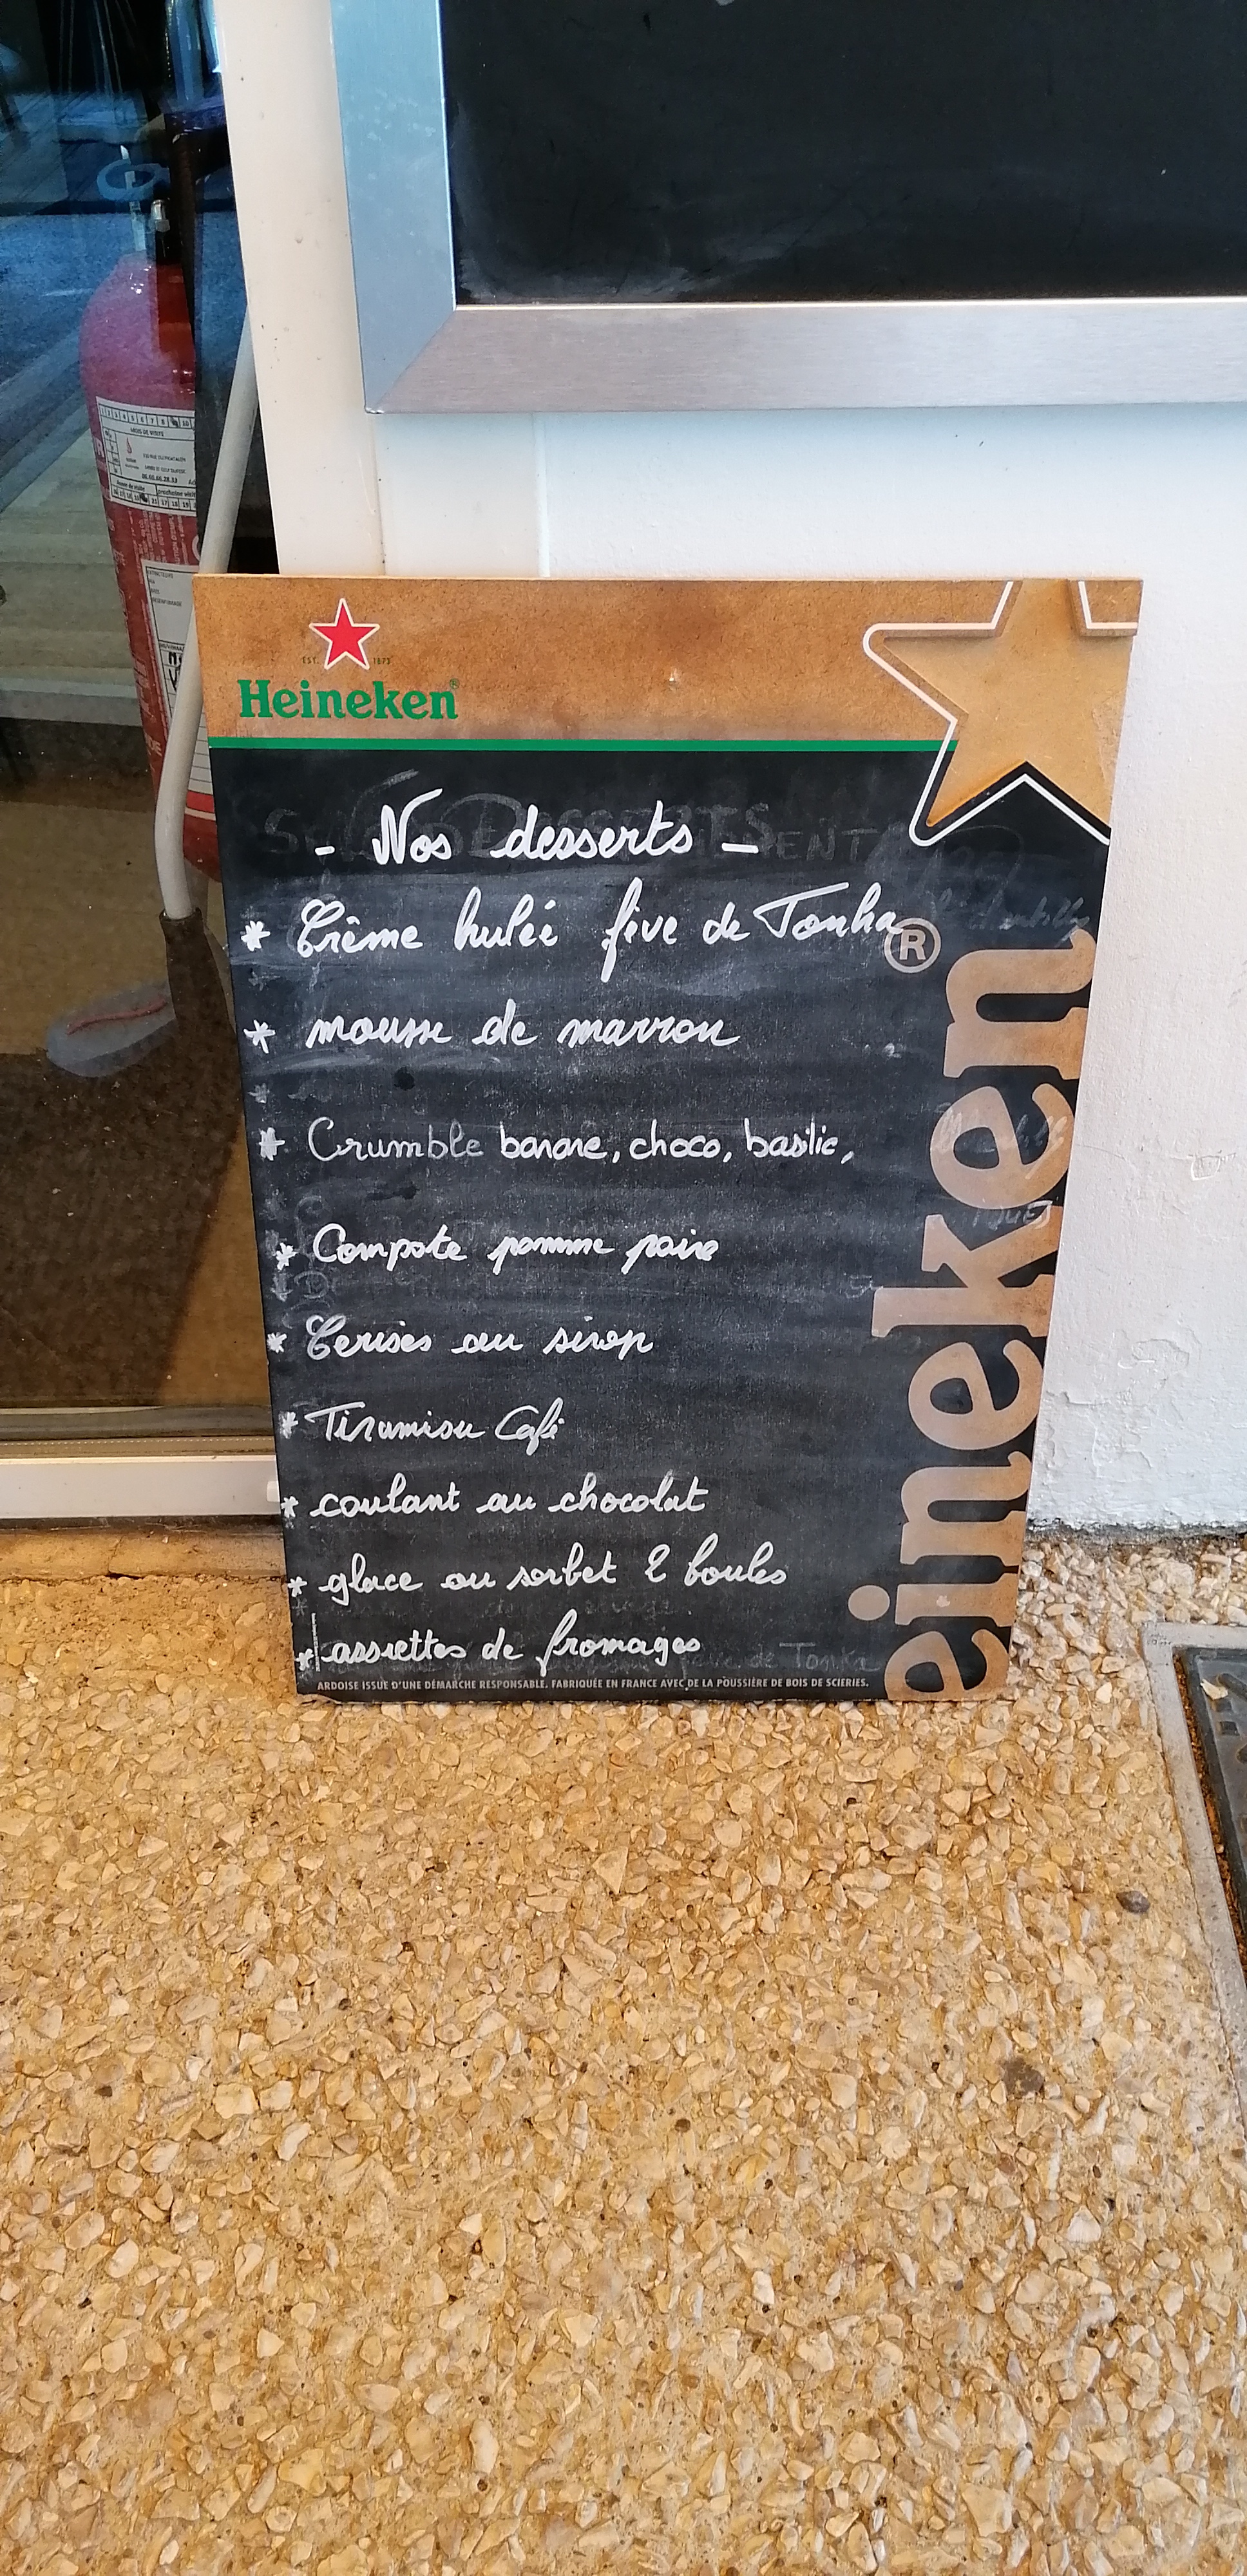 EST. 1873
Heineken®
- Nos desserts -
* Crème brulée fève de Tonka
* mousse de marron
* Crumble banane, choco, basilic,
* Compote pomme poire
* Cerises au sirop
* Tiramisu Café
* coulant au chocolat
* glace ou sorbet 2 boules
* assiettes de fromages
ARDOISE ISSUE D'UNE DÉMARCHE RESPONSABLE. FABRIQUÉE EN FRANCE AVEC DE LA POUSSIÈRE DE BOIS DE SCIERIES.
eineken®